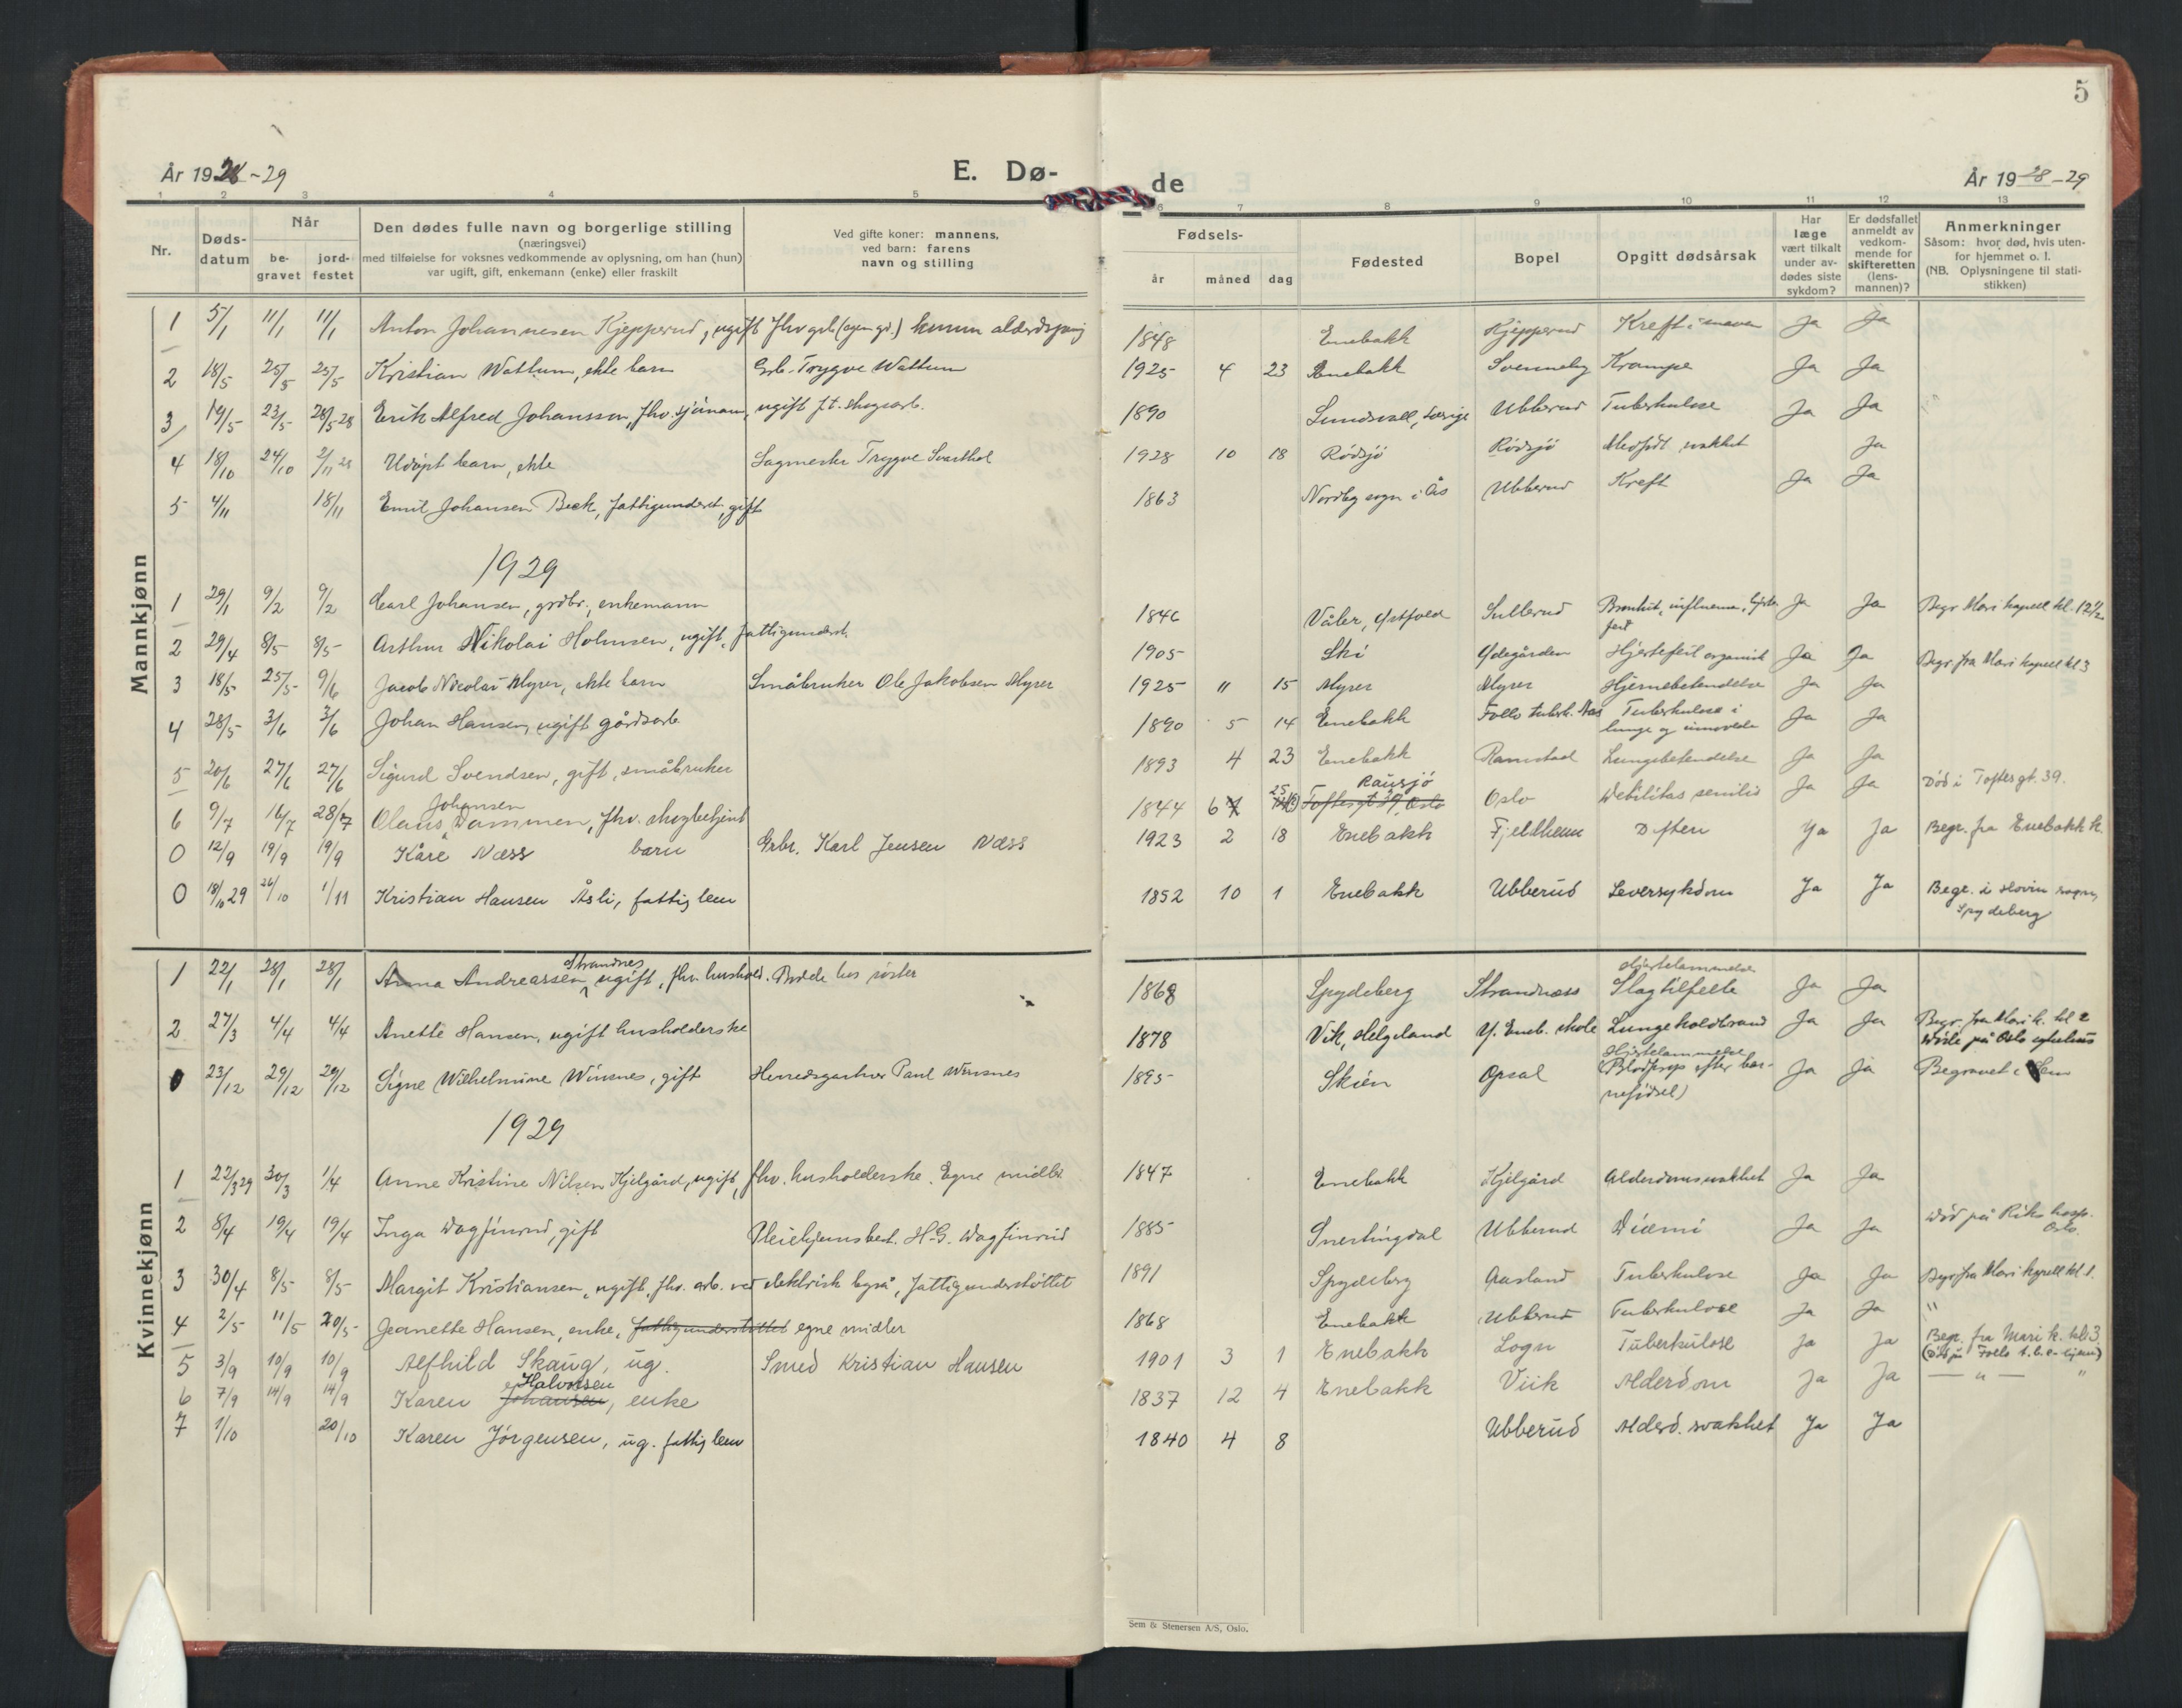 5
År 1928-29 E. Dø- de År 1928-29
1 2 3 4 5 6 7 8 9 10 11 12 13
Nr. Døds-datum Når be-gravet jord-festet Den dødes fulle navn og borgerlige stilling (næringsvei) med tilføielse for voksnes vedkommende av oplysning, om han (hun) var ugift, gift, enkemann (enke) eller fraskilt Ved gifte koner: mannens, ved barn: farens navn og stilling Fødsels- år måned dag Fødested Bopel Opgitt dødsårsak Har læge vært tilkalt under av-dødes siste sykdom? Er dødsfallet anmeldt av vedkom-mende for skifteretten (lens-mannen)? Anmerkninger Såsom: hvor død, hvis uten-for hjemmet o. l. (NB. Oplysningene til stati-stikken)
Mannkjønn
1 5/1 11/1 11/1 Anton Johannesen Kjepperud, ugift fhv. 1848 Enebakk Kjepperud Kreft i maven Ja Ja
2 18/5 25/5 25/5 Kristian Wattum, ekte barn Grb. Trygve Wattum 1925 4 23 Enebakk Svenneby Krampe Ja Ja
3 19/5 23/5 28/5-28 Erik Alfred Johansson, fhv. sjömann, ugift f.t. skogsarb. 1890 Sundsvall, Sverige Ubberud Tuberkulose Ja Ja
4 18/10 24/10 2/11 28 Udöpt barn, ekte Sagmester Trygve Svarthol 1928 10 18 Rödsjö Rödsjö Medfödt svakhet Ja
5 4/11 18/11 Emil Johansen Beck, fattigunderst., gift 1863 Nordby sogn i Ås Ubberud Kreft Ja Ja
1929
1 29/1 9/2 9/2 Carl Johansen, grdbr., enkemann 1846 Våler, Østfold Sullerud Bronkit, influensa, hjerte-
feil Ja Ja Begr. Mari kapell kl. 12½
2 29/4 8/5 8/5 Arthur Nikolai Holmsen, ugift, fattigunderst. 1905 Ski Ødegården Hjertefeil organisk Ja Ja Begr. fra Mari kapell kl 3
3 18/5 25/5 9/6 Jacob Nicolai Myrer, ekte barn Småbruker Ole Jakobsen Myrer 1925 11 15 Myrer Myrer Hjernebetendelse Ja Ja
4 28/5 3/6 3/6 Johan Hansen, ugift gårdsarb 1890 5 14 Enebakk Follo tuberk. Ås Tuberkulose i
lunge og Ja Ja
5 20/6 27/6 27/6 Sigurd Svendsen, gift, småbruker 1893 4 23 Enebakk Ramstad Lungebetendelse Ja Ja
6 9/7 16/7 28/7 Olaus Johansen Dammen, fhv. skogbetjent 1844 6 25 Rausjö Toftesgt 39, Oslo Oslo Debilitas senilis Ja Ja Död i Toftesgt. 39.
0 12/9 19/9 19/9 Kåre Næss barn Grbr. Karl Jensen Næss 1923 2 18 Enebakk Fjeldheim Difteri Ja Ja Begr. fra Enebakk k.
0 18/10 29 26/10 1/11 Kristian Hansen Åsli, fattig lem 1852 10 1 Enebakk Ubberud Leversykdom Ja Ja Begr. i Hovin sogn,
Spydeberg
Kvinnekjønn
1 22/1 28/1 28/1 Anna Andreassen Strandnes, ugift, fhv. hushold. Bodde hos söster 1868 Spydeberg Strandnæss Hjertelammelse
Slagtilfelle Ja Ja
2 27/3 4/4 4/4 Anette Hansen, ugift husholderske 1878 Vik, Helgeland Y. Eneb. skole Lungekoldbrand Ja Ja Begr. fra Mari k. kl 2
döde på Oslo sykehus
0 23/12 29/12 29/12 Signe Wilhelmine Winsnes, gift Herredsgartner Paul Winsnes 1895 Skien Opsal Hjertelammelse
(Blodprop efter bar-
nefödsel) Ja Ja Begravet i Sem
1929
1 22/3 29 30/3 1/4 Anne Kristine Nilsen Kjelgård, ugift, fhv. husholderske. Egne midler 1847 Enebakk Kjelgård Alderdomssvakhet Ja Ja
2 8/4 19/4 19/4 Inga Dagfinrud, gift Pleiehjemsbest. H.G. Dagfinrud 1885 Snertingdal Ubberud Uræmi Ja Ja Död på Riks hosp.
Oslo.
3 30/4 8/5 8/5 Margit Kristiansen, ugift, fhv. arb. ved elektrisk , fattigunderstöttet 1891 Spydeberg Aasland Tuberkulose Ja Ja Begr. fra Mari kapell kl 1.
4 2/5 11/5 20/5 Jeanette Hansen, enke, fattigunderstöttet egne midler 1868 Enebakk Ubberud Tuberkulose Ja Ja "
5 3/9 10/9 10/9 Alfhild Skaug, ug. Smed Kristian Hansen 1901 3 1 Enebakk Logn Tuberkulose Ja Ja Begr. fra Mari k. kl 3
(Död på Follo t.b.c.-hjem)
6 7/9 14/9 14/9 Karen Johansen Halvorsen, enke 1837 12 4 Enebakk Viik Alderdom Ja Ja — " — "
7 1/10 20/10 Karen Jörgensen, ug. fattig lem 1840 4 8 Ubberud Alderd. svakhet Ja Ja
Sem & Stenersen A/S, Oslo.